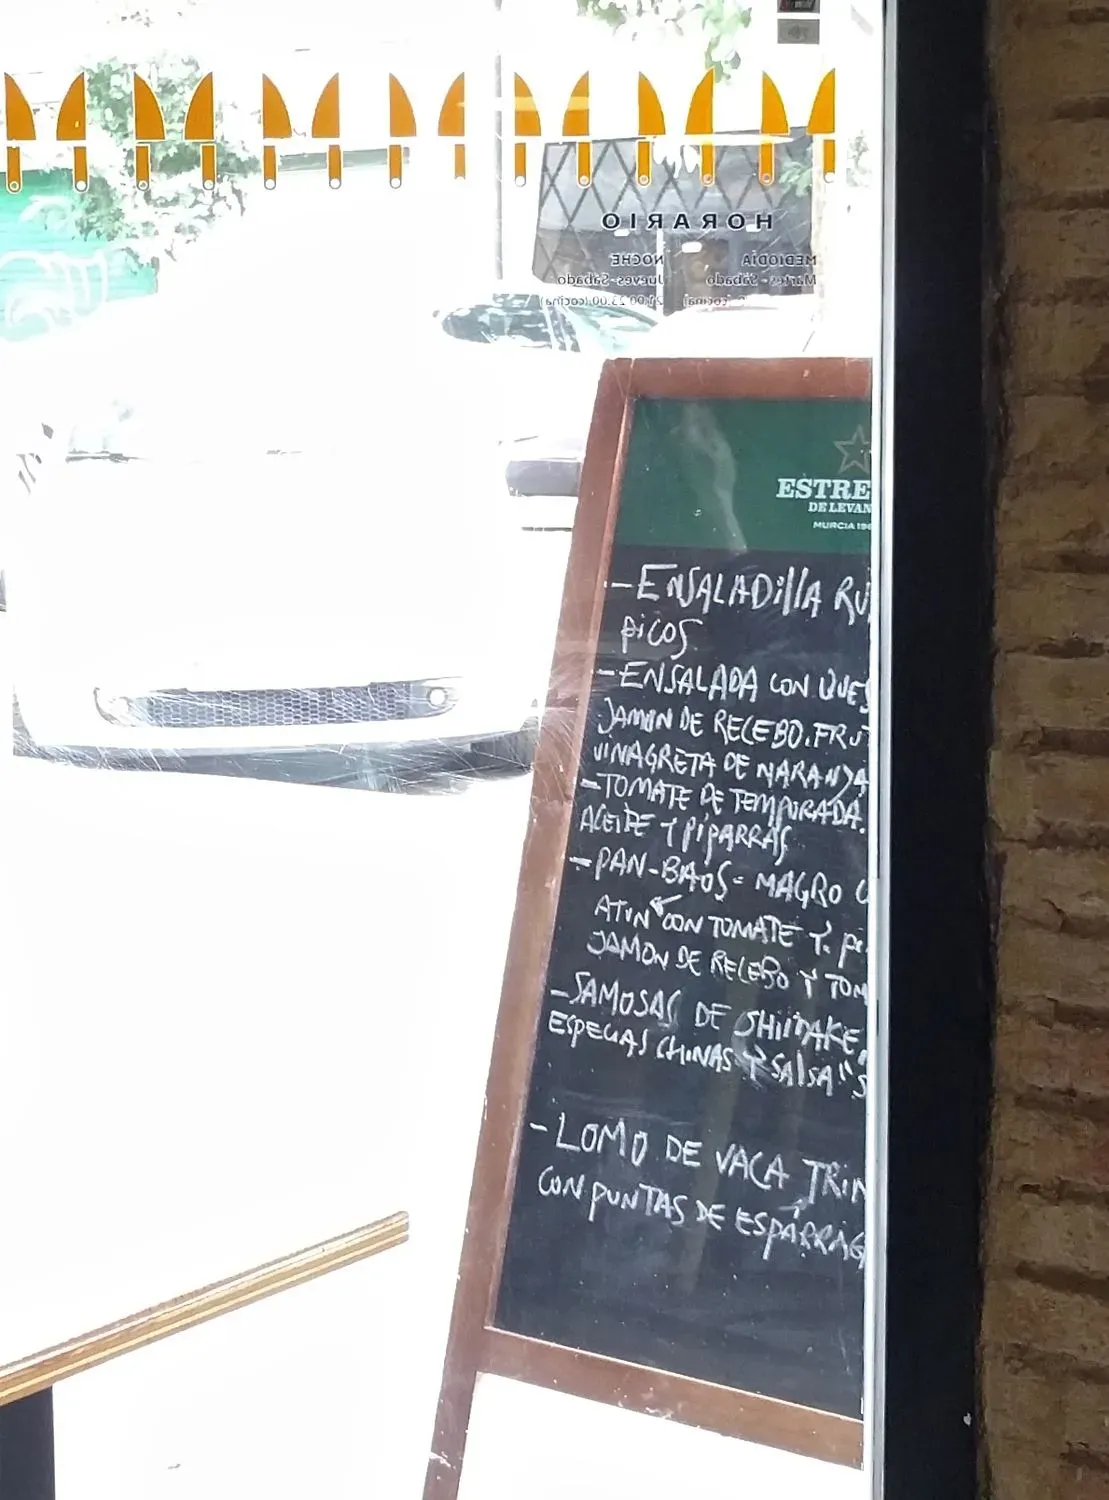 HORARIO
MEDIODÍA NOCHE
Martes - Sábado Jueves-Sábado
(cocina) 21:00-23:00 (cocina)
ESTRE
DE LEVAN
MURCIA 196
- ENSALADILLA RU
PICOS
- ENSALADA CON QUES
JAMON DE RECEBO. FRU
VINAGRETA DE NARANJA
- TOMATE DE TEMPORADA.
ACEITE Y PIPARRAS
- PAN-BAOS = MAGRO C
ATUN CON TOMATE Y. PI
JAMON DE RECEBO Y TOM
- SAMOSAS DE SHIITAKE,
ESPECIAS CHINAS Y SALSA "S
- LOMO DE VACA TRIN
CON PUNTAS DE ESPÁRRAG